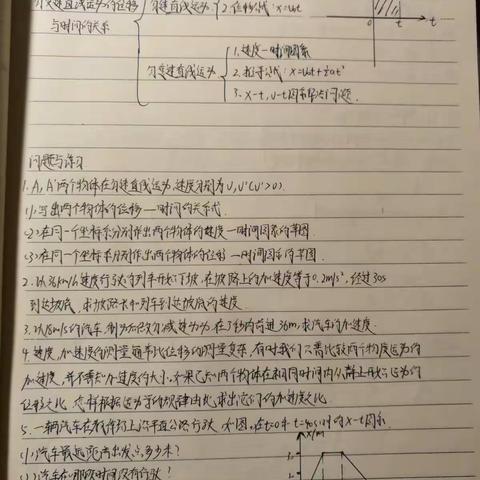 匀变速直线运动的位移
与时间的关系
匀速直线运动
2.位移公式:x=v₀t
0 t
匀变速直线运动
1.速度—时间图象
2.位移公式:x=v₀t+½at²
3.x-t,v-t图象 问题.
问题与练习
1.A,A'两个物体在匀速直线运动,速度分别为v,v'(v'>v).
(1)写出两个物体的位移—时间的关系式.
(2)在同一个坐标系分别作出两个物体的速度—时间图象的草图.
(3)在同一个坐标系分别作出两个物体的位移—时间图象的草图.
2.以36km/h速度行驶的列车开始下坡,在坡路上的加速度等于0.2m/s²,经过30s
到达坡底,求坡路 和列车到达坡底的速度.
3.以18m/s的汽车,制动后做匀减速运动,在3秒内前进36m,求汽车的加速度.
4.速度,加速度的测量通常比位移的测量复杂,有时我们只需比较两个物 运动的
加速度,并不需知加速度的大小.如果已知两个物体在相同时间内从静止开始运动的
位移之比,怎样根据运动学的规律由此求出它们的加速度之比
5.一辆汽车在 上沿平直公路行驶,如图,在t=0和t=40s 的x-t图象
x/m
(1)汽车最远距离出发点多少米?
(2)汽车在哪段时间没有行驶?